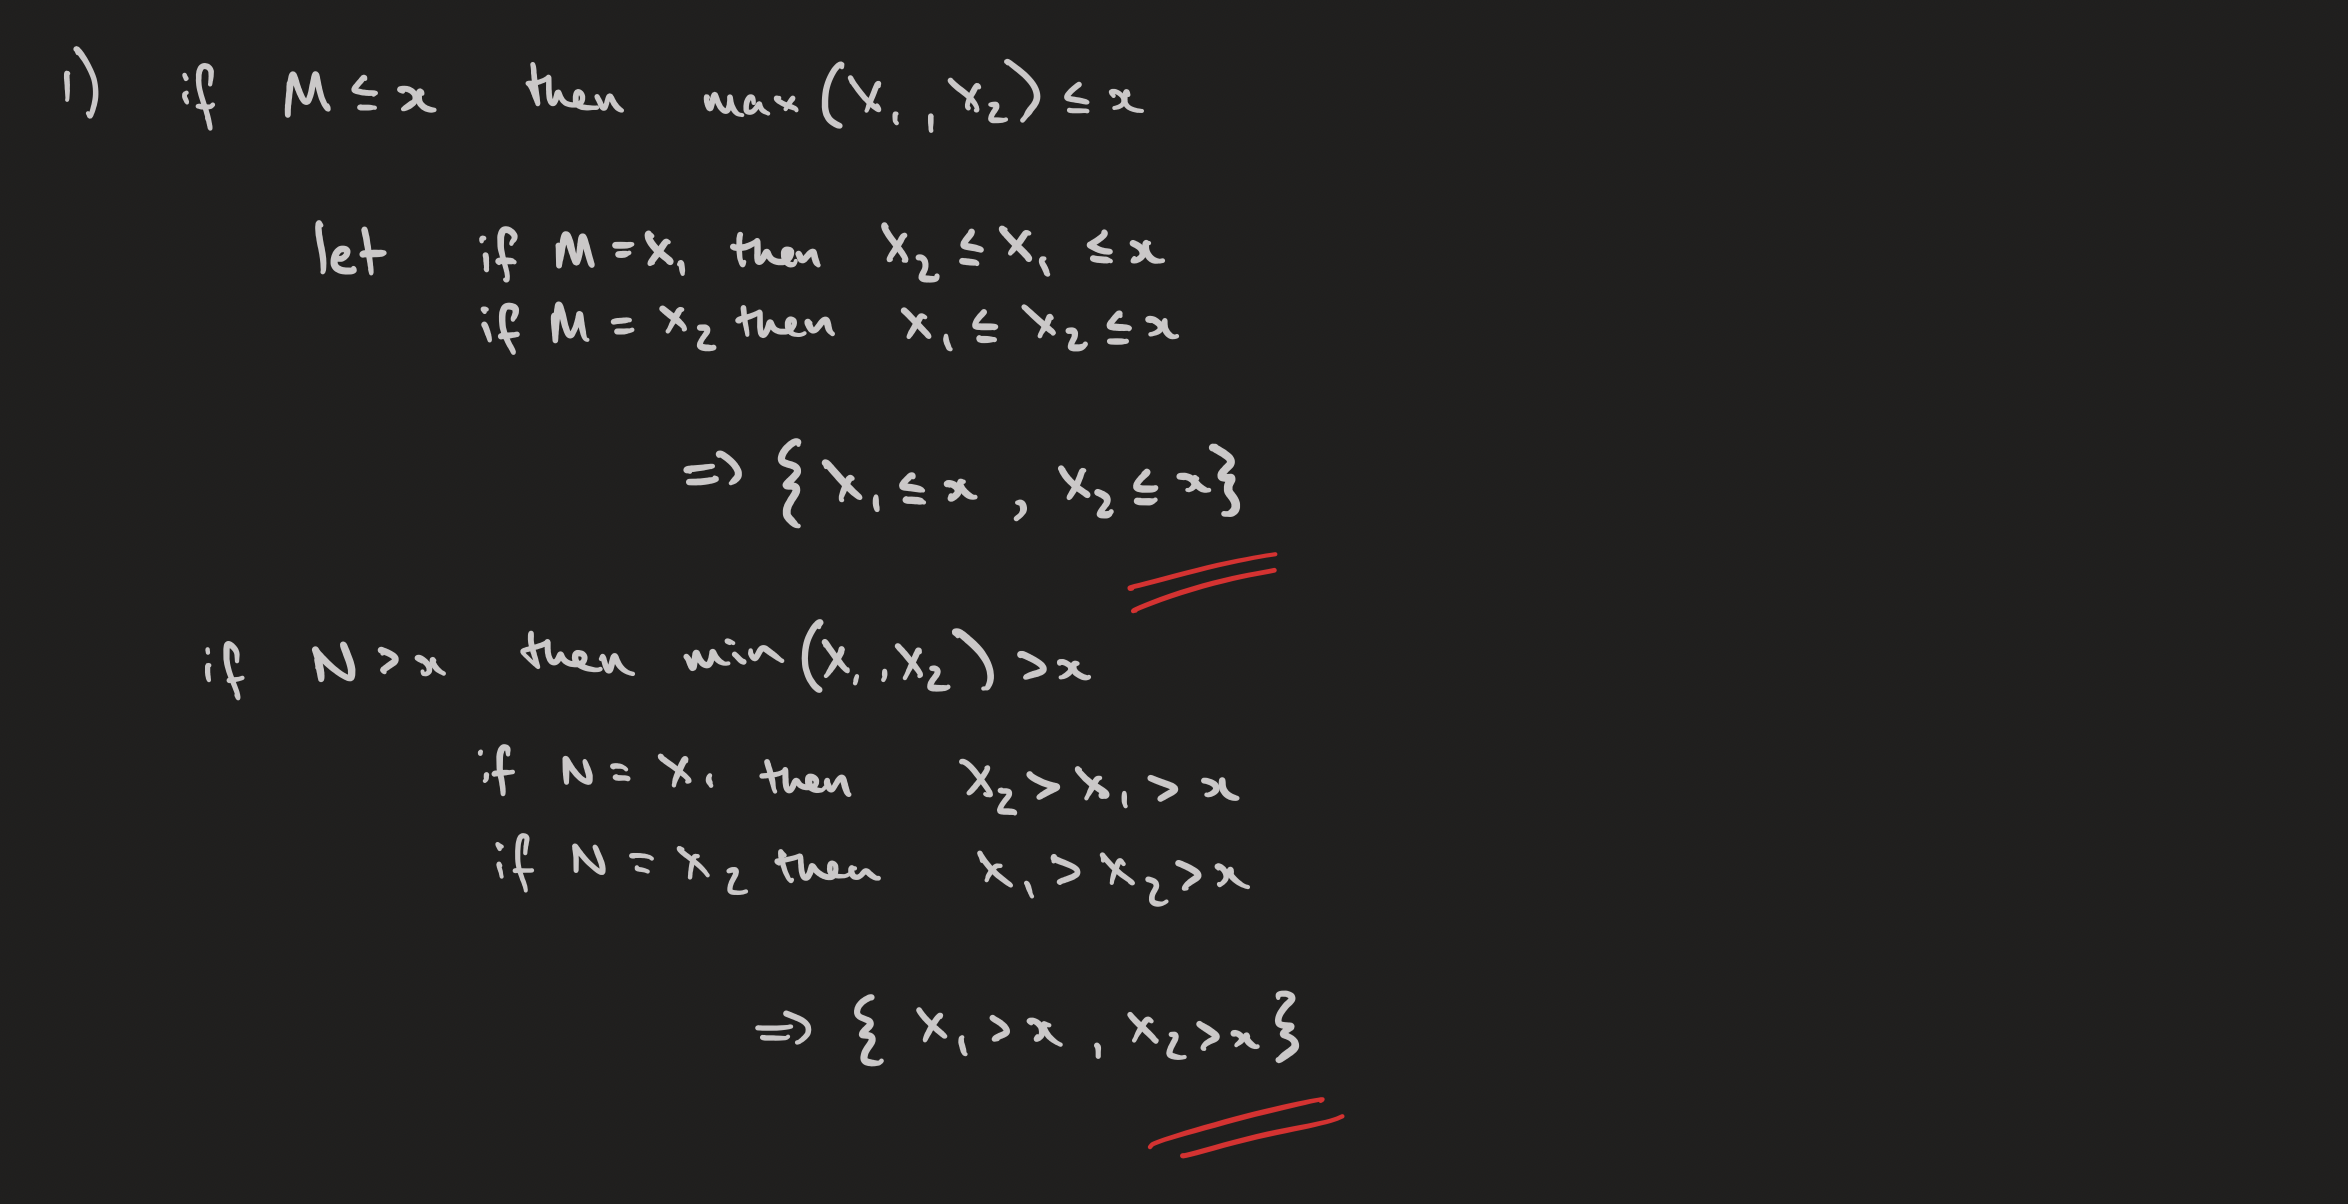 1) if M ≤ x then max(X₁, X₂) ≤ x
let if M = X₁ then X₂ ≤ X₁ ≤ x
if M = X₂ then X₁ ≤ X₂ ≤ x
⇒ {X₁ ≤ x, X₂ ≤ x}
if N > x then min(X₁, X₂) > x
if N = X₁ then X₂ > X₁ > x
if N = X₂ then X₁ > X₂ > x
⇒ {X₁ > x, X₂ > x}